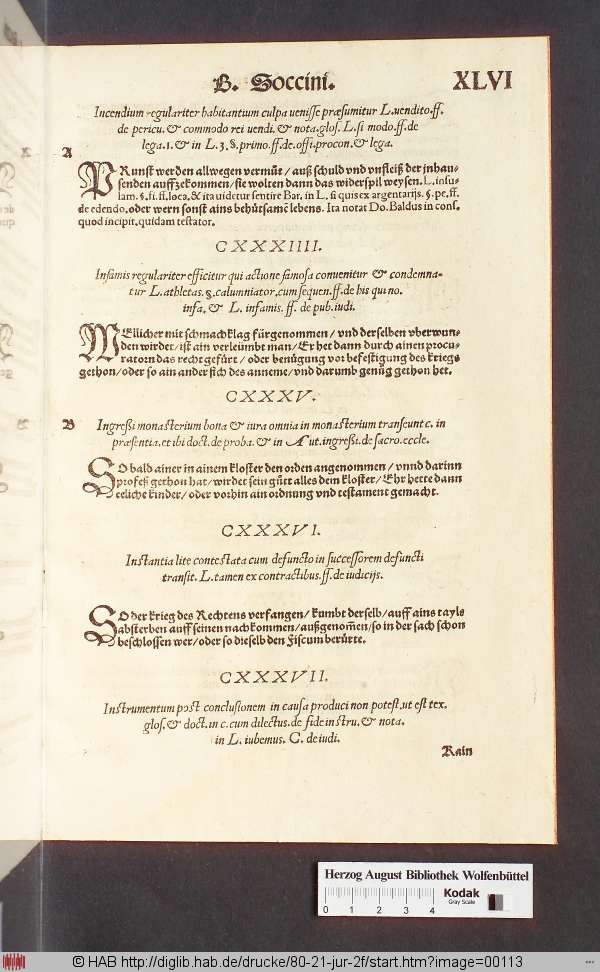 B. Soccini. XLVI
Incendium regulariter habitantium culpa uenisse præsumitur L. uendito. ff.
de pericu. & commodo rei uendi. & nota. glos. L. si modo. ff. de
lega. 1. & in L. 3. §. primo. ff. de. offi. procon. & lega.
A
PRunst werden allwegen vermüt / auß schuld vnd vnfleiß der inhau-
senden auffzekommen / sie wolten dann das widerspil weysen. L. insu-
lam. §. fi. ff. loca. & ita uidetur sentire Bar. in L. si quis ex argentarijs. §. pe. ff.
de edendo. oder wern sonst ains behütsamē lebens. Ita notat Do. Baldus in cons.
quod incipit. quidam testator.
CXXXIIII.
Infamis regulariter efficitur qui actione famosa conuenitur & condemna-
tur L. athletas. §. calumniator. cum sequen. ff. de his qui no.
infa. & L. infamis. ff. de pub. iudi.
WEllicher mit schmachklag fürgenommen / vnd derselben vberwun-
den wirder / ist ain verleümbt man / Er het dann durch ainen procu-
ratorn das recht gefürt / oder benügung vor befestigung des kriegs
gethon / oder so ain ander sich des anneme / vnd darumb genüg gethon het.
CXXXV.
B Ingreßi monasterium bona & iura omnia in monasterium transeunt c. in
præsentia. et ibi doct. de proba. & in Aut. ingreßi. de sacro. eccle.
SO bald ainer in ainem kloster den orden angenommen / vnnd darinn
profeß gethon hat / wirdet sein gütt alles dem kloster / Ehr hette dann
eeliche kinder / oder vorhin ain ordnung vnd testament gemacht.
CXXXVI.
Instantia lite contestata cum defuncto in successorem defuncti
transit. L. tamen ex contractibus. ff. de iudicijs.
SO der krieg des Rechtens verfangen / kumbt derselb / auff ains tayls
absterben auff seinen nachkommen / außgenom̄en / so in der sach schon
beschlossen wer / oder so dieselb den Fiscum berürte.
CXXXVII.
Instrumentum post conclusionem in causa produci non potest, ut est tex.
glos. & doct. in c. cum dilectus. de fide instru. & nota.
in L. iubemus. C. de iudi.
Rain
Herzog August Bibliothek Wolfenbüttel
0 1 2 3 4
Kodak
Gray Scale
© HAB http://diglib.hab.de/drucke/80-21-jur-2f/start.htm?image=00113